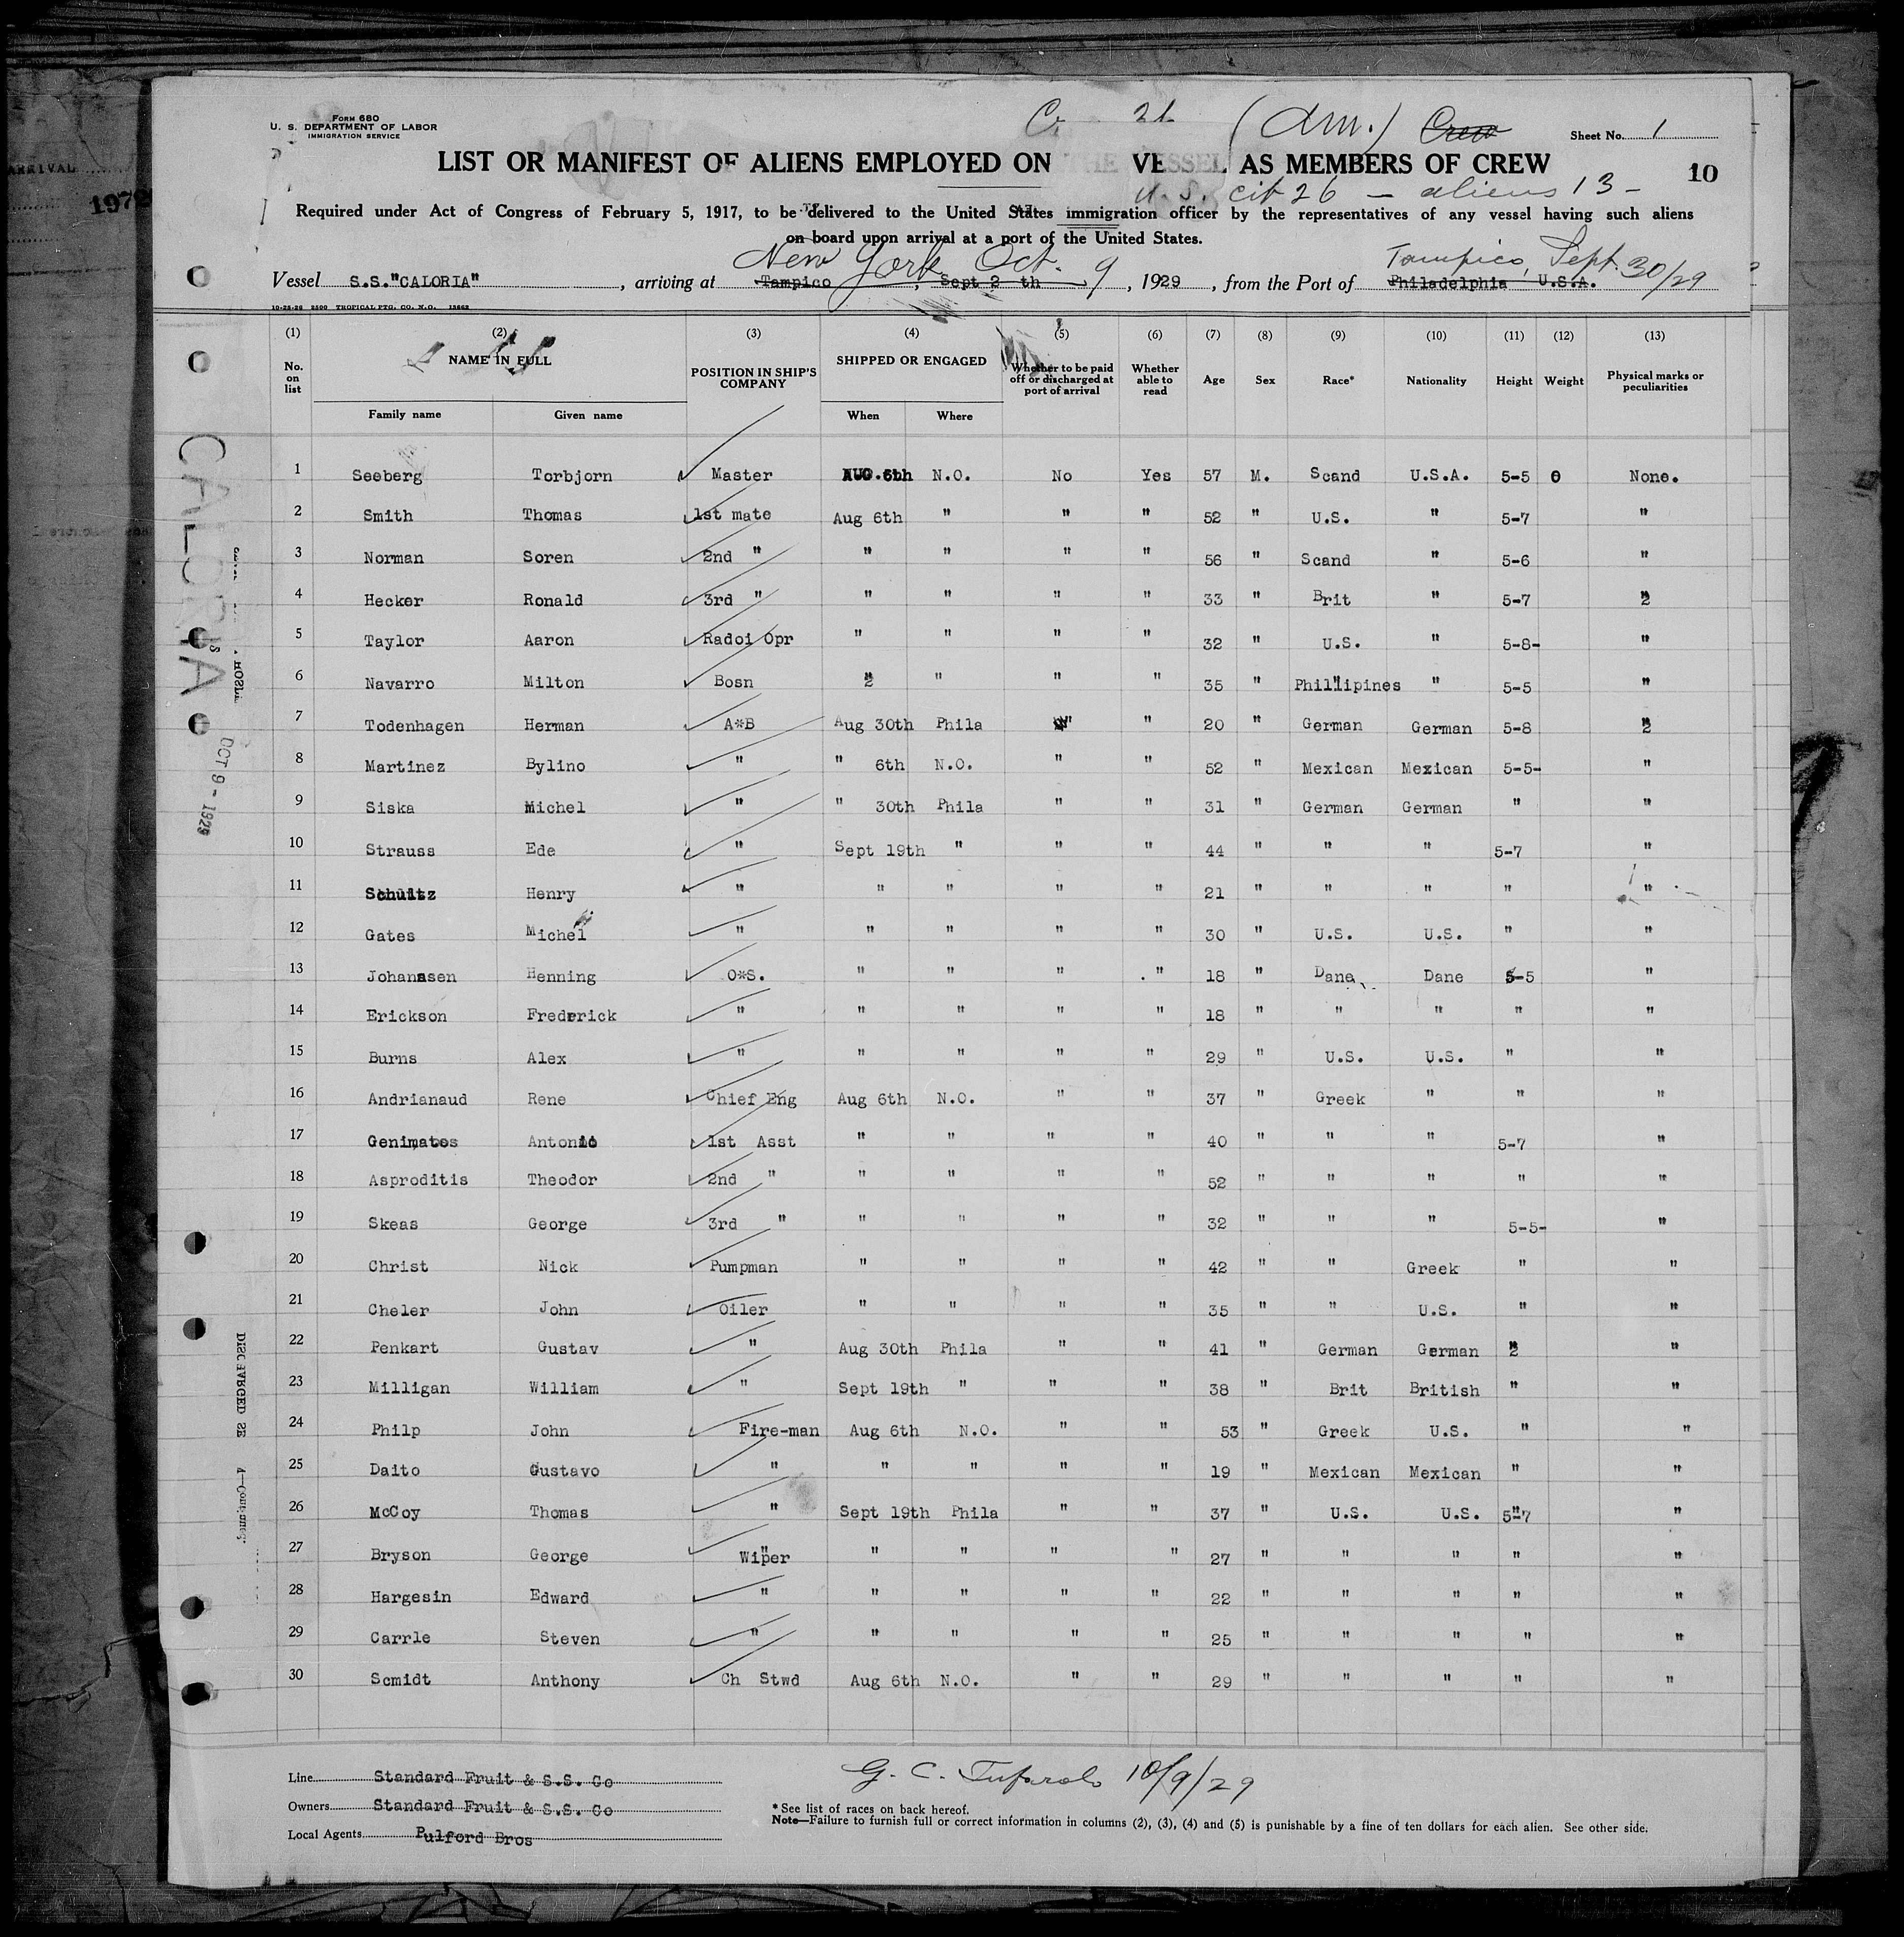 Form 680
U. S. DEPARTMENT OF LABOR
IMMIGRATION SERVICE
(Am.) Crew
Sheet No. 1
LIST OR MANIFEST OF ALIENS EMPLOYED ON THE VESSEL AS MEMBERS OF CREW
10
U.S. cit 26 — aliens 13 -
Required under Act of Congress of February 5, 1917, to be delivered to the United States immigration officer by the representatives of any vessel having such aliens
on board upon arrival at a port of the United States.
New York Oct. 9 Tampico, Sept. 30/29
Vessel S.S."CALORIA", arriving at Tampico, Sept 2 th, 1929, from the Port of Philadelphia U.S.A.
10-25-26 2500 TROPICAL PTG. CO. N.O. 13662
(1) (2) (3) (4) (5) (6) (7) (8) (9) (10) (11) (12) (13)
No. on list NAME IN FULL POSITION IN SHIP'S COMPANY SHIPPED OR ENGAGED Whether to be paid off or discharged at port of arrival Whether able to read Age Sex Race* Nationality Height Weight Physical marks or peculiarities
Family name Given name When Where
1 Seeberg Torbjorn Master AUG.6th N.O. No Yes 57 M. Scand U.S.A. 5-5 0 None.
2 Smith Thomas 1st mate Aug 6th " " " 52 " U.S. " 5-7 "
3 Norman Soren 2nd " " " " " 56 " Scand " 5-6 "
4 Hecker Ronald 3rd " " " " " 33 " Brit " 5-7 "
5 Taylor Aaron Radoi Opr " " " " 32 " U.S. " 5-8- "
6 Navarro Milton Bosn " " " " 35 " Phillipines " 5-5 "
7 Todenhagen Herman A*B Aug 30th Phila " " 20 " German German 5-8 "
8 Martinez Bylino " " 6th N.O. " " 52 " Mexican Mexican 5-5- "
9 Siska Michel " " 30th Phila " " 31 " German German " "
10 Strauss Ede " Sept 19th " " " 44 " " " 5-7 "
11 Schultz Henry " " " " " 21 " " " " "
12 Gates Michel " " " " " 30 " U.S. U.S. " "
13 Johannsen Henning O*S. " " " " 18 " Dane Dane 5-5 "
14 Erickson Frederick " " " " " 18 " " " " "
15 Burns Alex " " " " " 29 " U.S. U.S. " "
16 Andrianaud Rene Chief Eng Aug 6th N.O. " " 37 " Greek " " "
17 Genimatos Antonio 1st Asst " " " " 40 " " " 5-7 "
18 Asproditis Theodor 2nd " " " " " 52 " " " " "
19 Skeas George 3rd " " " " " 32 " " " 5-5- "
20 Christ Nick Pumpman " " " " 42 " " Greek " "
21 Cheler John Oiler " " " " 35 " " U.S. " "
22 Penkart Gustav " Aug 30th Phila " " 41 " German German " "
23 Milligan William " Sept 19th " " " 38 " Brit British " "
24 Philp John Fire-man Aug 6th N.O. " " 53 " Greek U.S. " "
25 Daito Gustavo " " " " " 19 " Mexican Mexican " "
26 McCoy Thomas " Sept 19th Phila " " 37 " U.S. U.S. 5-7 "
27 Bryson George Wiper " " " " 27 " " " " "
28 Hargesin Edward " " " " " 22 " " " " "
29 Carrle Steven " " " " " 25 " " " " "
30 Scmidt Anthony Ch Stwd Aug 6th N.O. " " 29 " " " " "
Line Standard Fruit & S.S. Co
Owners Standard Fruit & S.S. Co
Local Agents Pulford Bros
G. C. 10/9/29
* See list of races on back hereof.
Note—Failure to furnish full or correct information in columns (2), (3), (4) and (5) is punishable by a fine of ten dollars for each alien. See other side.
CALORIA
OCT 9 - 1929
ARRIVAL